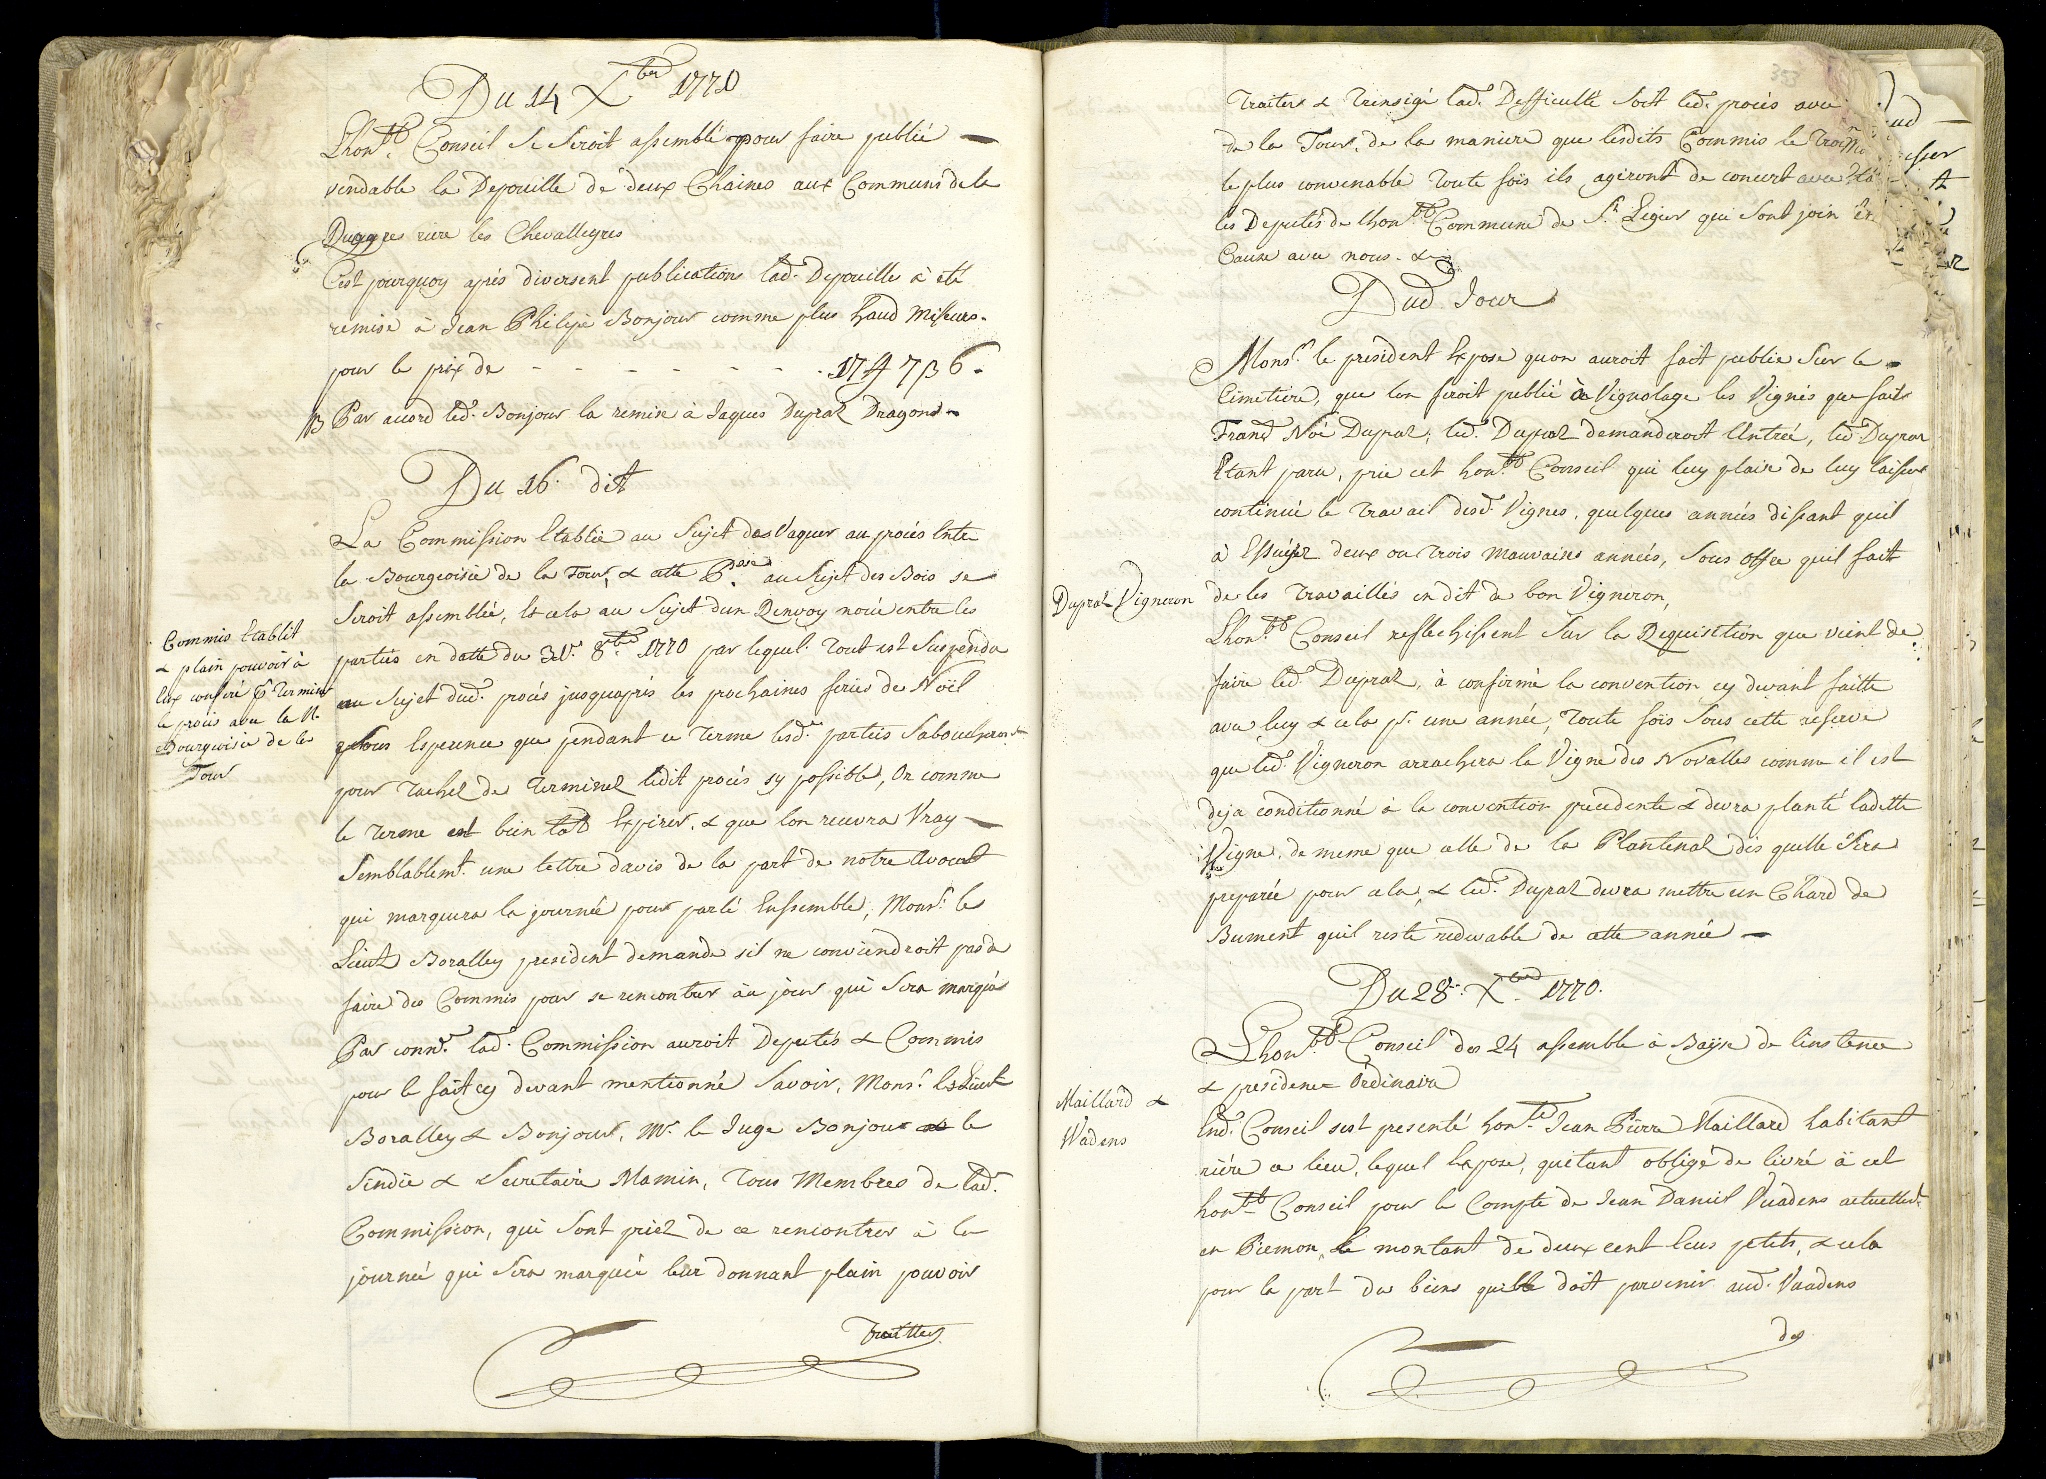 Du 14 Xbre 1770
Lhonble Conseil Se Seroit assemblé pour faire publié
vendable la Depouille de deux Chaines aux Communs de la
rière les Chevallegres
C'est pourquoy apprés diversent publications lad. Depouille à eté
remise à Jean Philipe Bonjour comme plus haud Miseurs.
pour le prix de - - - - - - -
Par acord led. Bonjour la remise à Jaques Dupraz Dragond
Du 16. dit
La Commission Etablie au Sujet des Vaquer au procés Entre
la Bourgeoisie de la Tour, & cette Bsie au Sujet des Bois se
Seroit assemblée, Et cela au Sujet dun Renvoy noüé entre les
Commis Etablit
& plain pouvoir à
Eux conferé pr Terminer
le procés avec la N.
Bourgeoisie de la
Tour
parties en datte du 31e. 8bre 1770 par lequel. Tout est Suspendu
au Sujet dud. procés jusquaprés les prochaines feries de Noël
Sous Esperence que pendant ce Terme lesd. parties Saboucheront
pour Tachez de Terminez ledit procés sy possible, Or comme
le Terme est bien tot Expirer, & que lon recevra Vray
Semblablemt. une lettre davis de la part de notre Avocat
qui marquera la journée pour parlé Enssemble, Monsr. le
Lieut Boralley president demande sil ne conviendroit pas de
faire des Commis pour se rencontrer au jour qui Sera marqués
Par connce. lad. Commission auroit Deputés & Commis
pour le fait cy devant mentionné Savoir, Monsr. les Lieut
Boralley & Bonjour, Mr. le Juge Bonjour le
Sindic & Secretaire Mamin, Tous Membres de lad.
Commission, qui Sont priez de ce rencontrer à la
journée qui Sera marquée leur donnant plain pouvoir
Traitter
353
Traiter & Transigé lad. Difficulté Soit led. procés avec
de la Tour, de la maniere que lesdits Commis le
le plus convenable Toute fois ils agiront de concert avec
les Deputés de Lhonble Commune de St. Legier qui Sont join en
Cause avec nous. &
Dud Jour
Monsr. le president Expose quon auroit fait publié Sur le
Cimetiere, que lon feroit publié à Vignolage les Vignes que fait
Frand Noé Dupraz, led. Dupraz demanderoit Entrée, led Dupraz
Etant paru, prie cet honble Conseil qui luy plaise de luy laisser
continüe le Travail desd. Vignes, quelques années dissant quil
à Essuyez deux ou Trois mauvaises années, Sous Offre quil fait
Dupraz Vigneron
de les Travaillés en dit de bon Vigneron,
Lhonble Conseil reflechissent Sur la Requisition que vient de
faire led. Dupraz, à confirmé la convention cy devant faitte
avec luy & cela pr. une année, Toute fois Sous cette reserve
que led. Vigneron arrachera la Vigne des Novalles comme il est
deja conditionné à la convention precedente & devra planté ladette
Vigne, de meme que celle de la Plantenaz dés quelle Sera
preparée pour cela, & led. Dupraz devra mettre un Chard de
Bument quil reste redevable de cette année
Du 28e. Xbre 1770.
Lhonble Conseil des 24 assemble à Bayse de linstence
& presidence Ordinaire
Maillard &
Wadens
End. Conseil sest presenté honte Jean Pierre Maillard habitant
riére ce lieu, lequel Expose, quetant obligé de livré à cet
honble Conseil pour le Compte de Jean Daniel Vuadens actuellemt.
en Piemon, le montant de deux cent Ecus petits, & cela
pour la part des biens quille doit parvenir aud. Vuadens
des